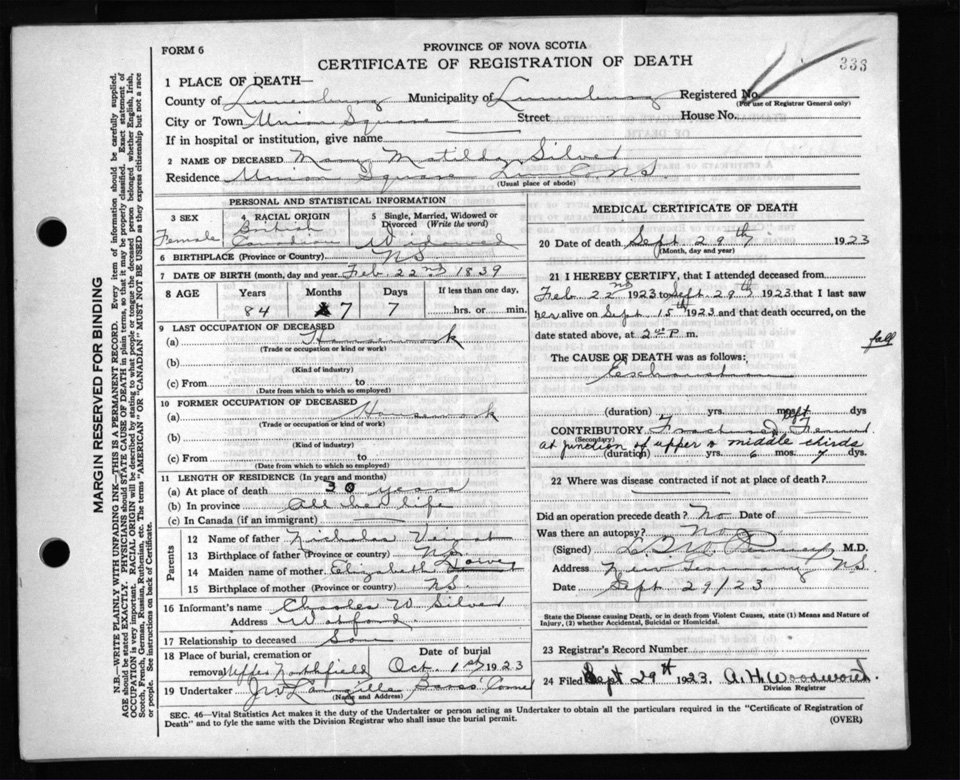 FORM 6
PROVINCE OF NOVA SCOTIA
CERTIFICATE OF REGISTRATION OF DEATH
333
1 PLACE OF DEATH—
County of Lunenburg Municipality of Lunenburg Registered No.
(For use of Registrar General only)
City or Town Union Square Street House No.
If in hospital or institution, give name
2 NAME OF DECEASED Mary Matilda Silver
Residence Union Square Lun. Co N.S.
(Usual place of abode)
PERSONAL AND STATISTICAL INFORMATION
3 SEX
Female
4 RACIAL ORIGIN
British
Canadian
5 Single, Married, Widowed or
Divorced (Write the word)
Widowed
6 BIRTHPLACE (Province or Country) N.S.
7 DATE OF BIRTH (month, day and year) Feb. 22nd 1839
8 AGE Years Months Days If less than one day,
84 7 7 hrs. or min.
9 LAST OCCUPATION OF DECEASED
(a) Housework
(Trade or occupation or kind of work)
(b)
(Kind of industry)
(c) From to
(Date from which to which so employed)
10 FORMER OCCUPATION OF DECEASED
(a) Housework
(Trade or occupation or kind of work)
(b)
(Kind of industry)
(c) From to
(Date from which to which so employed)
11 LENGTH OF RESIDENCE (In years and months)
(a) At place of death 30 years
(b) In province All her life
(c) In Canada (if an immigrant)
Parents
12 Name of father Nicholas Veinot
13 Birthplace of father (Province or country) N.S.
14 Maiden name of mother Elizabeth
15 Birthplace of mother (Province or country) N.S.
16 Informant's name Charles W. Silver
Address Watford
17 Relationship to deceased Son
18 Place of burial, cremation or
removal Upper Northfield
Date of burial
Oct. 1st 1923
19 Undertaker J W Langille Barss' Corner
(Name and Address)
MEDICAL CERTIFICATE OF DEATH
20 Date of death Sept 29th 1923
(Month, day and year)
21 I HEREBY CERTIFY, that I attended deceased from
Feb 22nd 1923 to Sept. 29th 1923 that I last saw
her alive on Sept 15th 1923 and that death occurred, on the
date stated above, at 2 P m.
The CAUSE OF DEATH was as follows: fall
Exhaustion
(duration) yrs. mos. dys
CONTRIBUTORY Fractured left Femur
(Secondary) at junction of upper & middle thirds
(duration) yrs. 6 mos. 7 dys.
22 Where was disease contracted if not at place of death?
Did an operation precede death? No Date of
Was there an autopsy? No
(Signed) M.D.
Address New Germany N.S.
Date Sept 29/23
State the Disease causing Death, or in death from Violent Causes, state (1) Means and Nature of
Injury, (2) whether Accidental, Suicidal or Homicidal.
23 Registrar's Record Number
24 Filed Sept 29th 1923. A. H. Woodworth.
Division Registrar
SEC. 46—Vital Statistics Act makes it the duty of the Undertaker or person acting as Undertaker to obtain all the particulars required in the "Certificate of Registration of
Death" and to fyle the same with the Division Registrar who shall issue the burial permit.
(OVER)
MARGIN RESERVED FOR BINDING
N.B.—WRITE PLAINLY WITH UNFADING INK—THIS IS A PERMANENT RECORD. Every item of information should be carefully supplied.
AGE should be stated EXACTLY. PHYSICIANS should STATE CAUSE OF DEATH in plain terms, so that it may be properly classified. Exact statement of
OCCUPATION is very important. RACIAL ORIGIN will be described by stating to what people or tongue the deceased person belonged whether English, Irish,
Scotch, French, German, Russian, Ruthenian, etc. The terms "AMERICAN" OR "CANADIAN" MUST NOT BE USED as they express citizenship but not a race
or people. See instructions on back of Certificate.